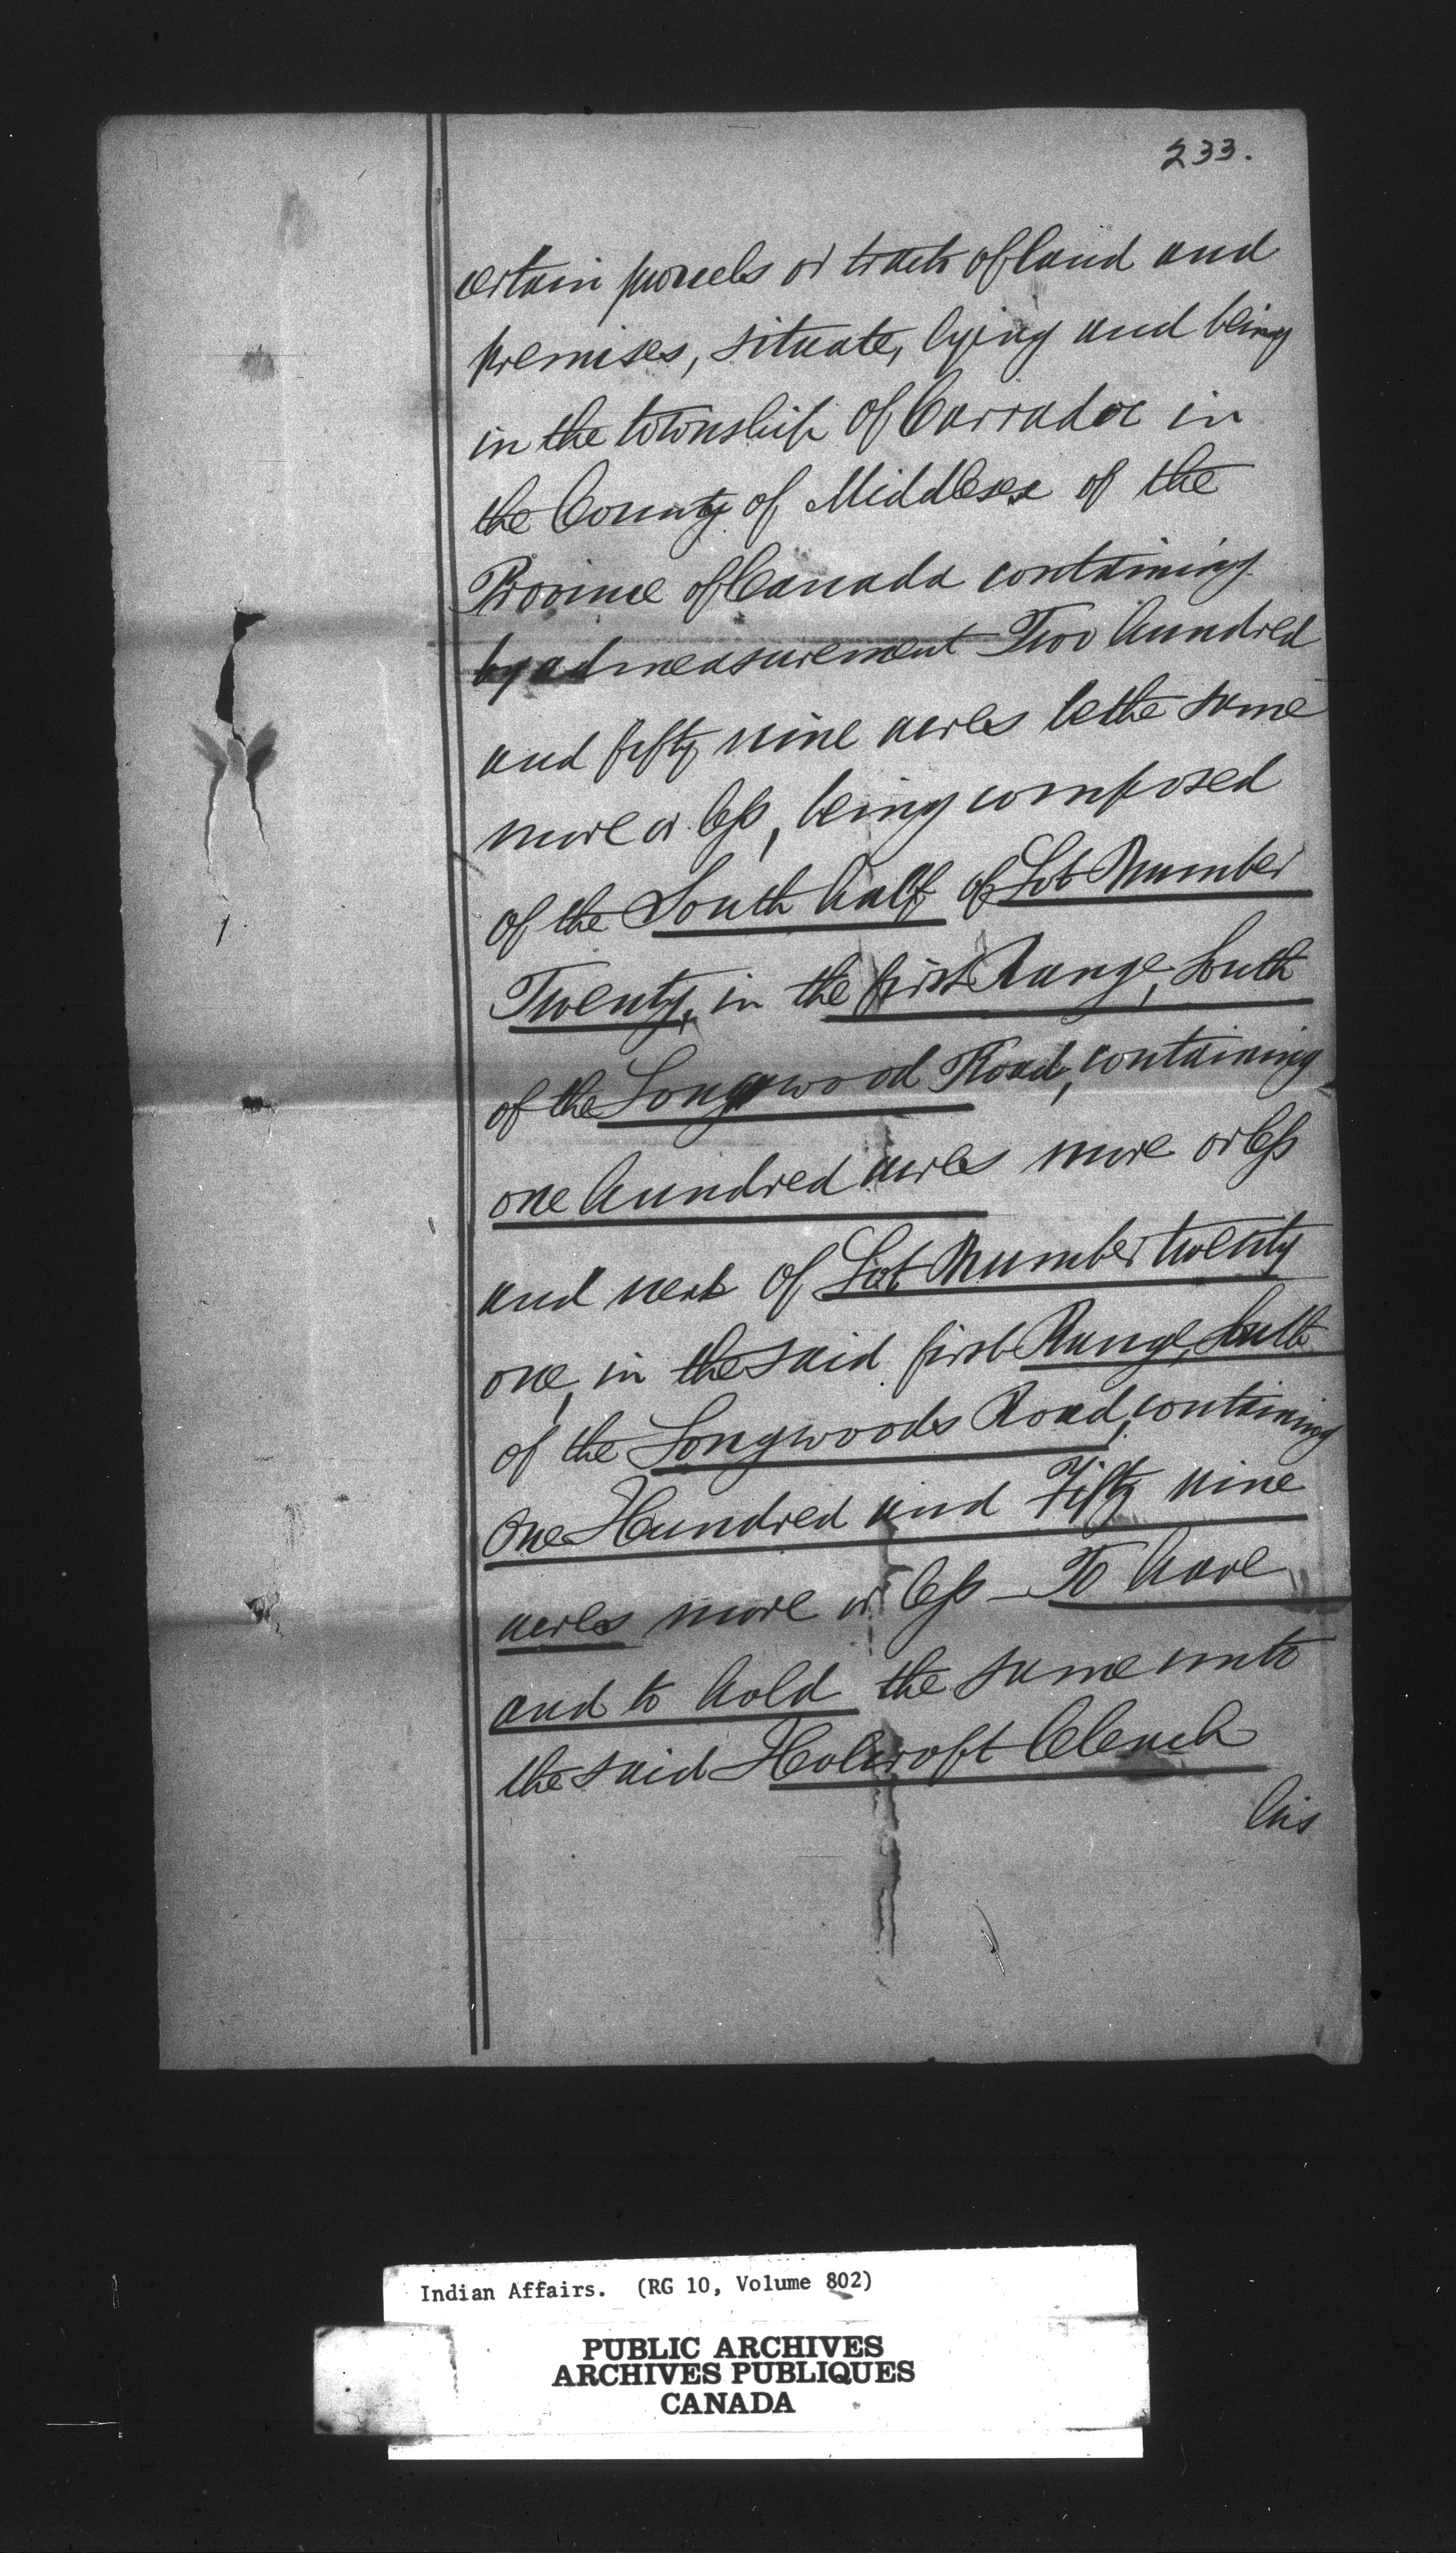 233.
certain parcels or tracts of land and
premises, situate, lying and being
in the township of Carradoc in
the County of Middlesex of the
Province of Canada containing
by admeasurement Two hundred
and fifty nine acres be the same
more or less, being composed
of the South half of Lot Number
Twenty, in the first Range, South
of the Longwood Road, containing
one hundred acres more or less
and of Lot Number twenty
one, in the said first Range, South
of the Longwoods Road, containing
One Hundred and Fifty nine
acres more or less – To have
and to hold the same unto
the said Holcroft Clench
his
Indian Affairs. (RG 10, Volume 802)
PUBLIC ARCHIVES
ARCHIVES PUBLIQUES
CANADA